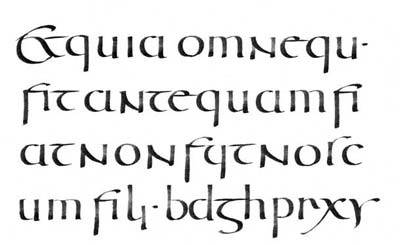 &quia omnequ·
fit antequam fi
at non fuit nosc
um fili· bdghprxy